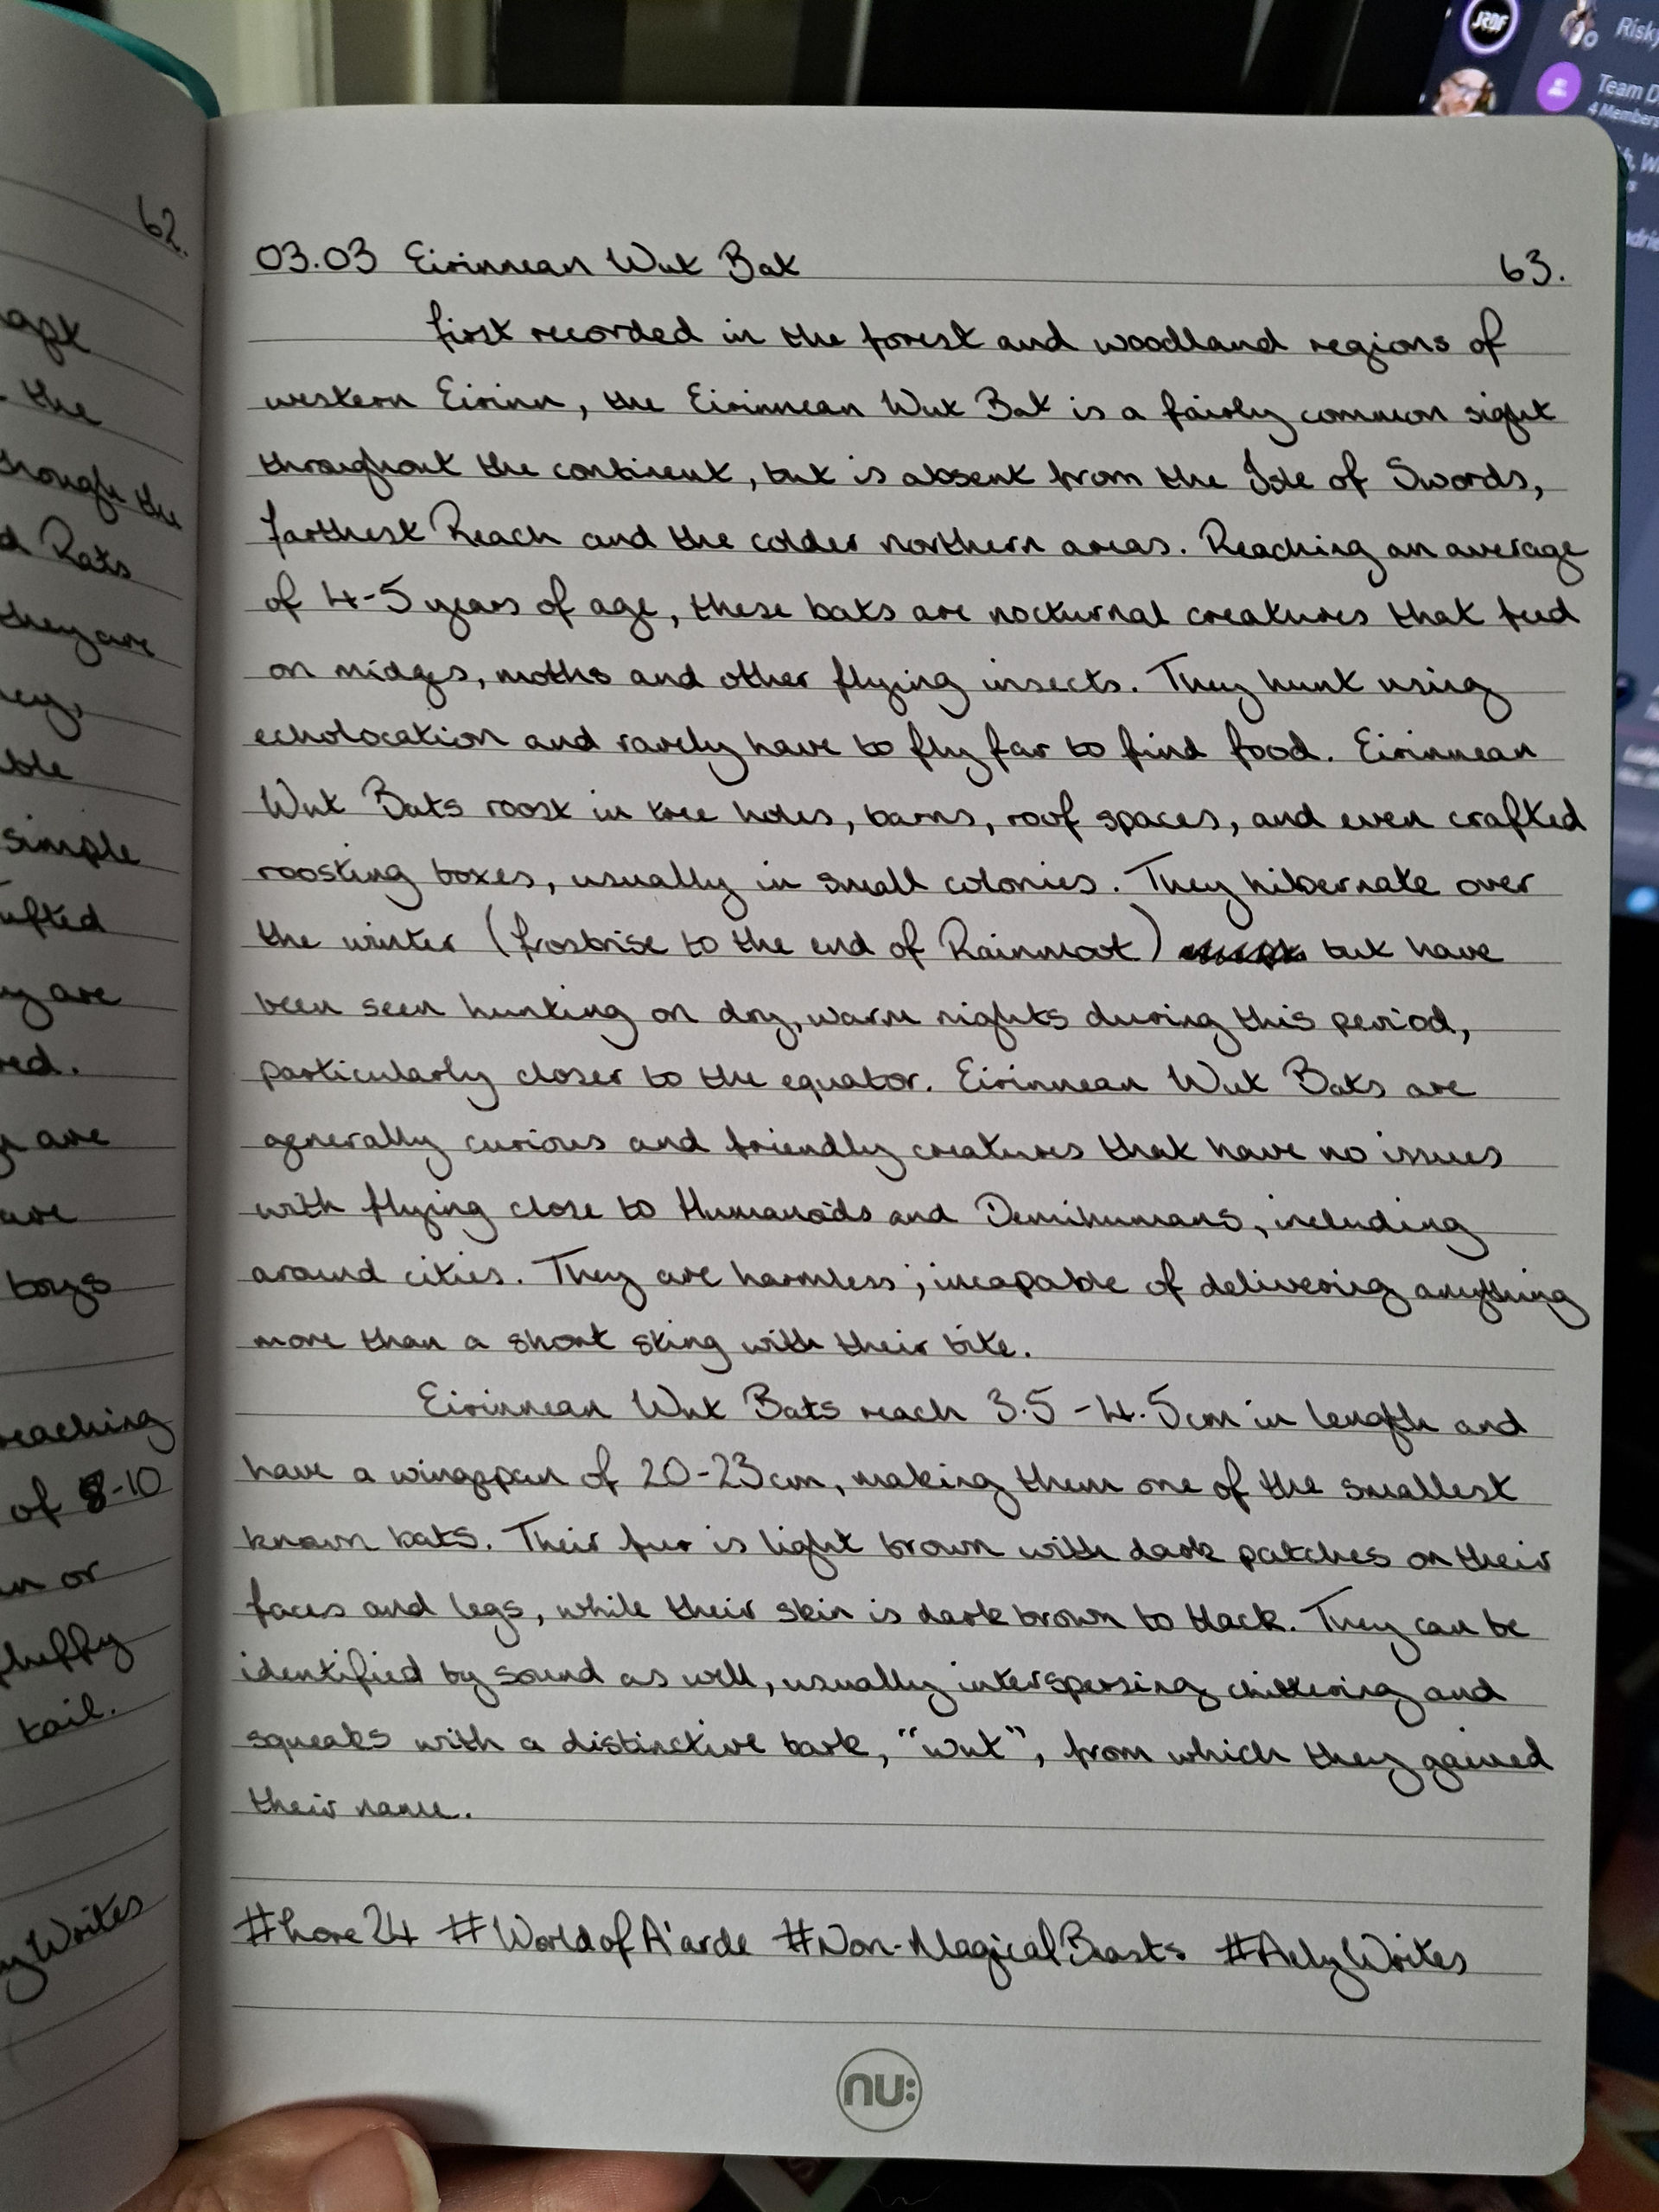 62.
the
though the
d Rats
they are
simple
y are
are
boys
reaching
of 8-10
in or
fluffy
tail.
yWrites
03.03 Eirinnean Wut Bat 63.
First recorded in the forest and woodland regions of
western Eirinn, the Eirinnean Wut Bat is a fairly common sight
throughout the continent, but is absent from the Isle of Swords,
Farthest Reach and the colder northern areas. Reaching an average
of 4-5 years of age, these bats are nocturnal creatures that feed
on midges, moths and other flying insects. They hunt using
echolocation and rarely have to fly far to find food. Eirinnean
Wut Bats roost in tree holes, barns, roof spaces, and even crafted
roosting boxes, usually in small colonies. They hibernate over
the winter (Frostrise to the end of Rainmoot) but have
been seen hunting on dry, warm nights during this period,
particularly closer to the equator. Eirinnean Wut Bats are
generally curious and friendly creatures that have no issues
with flying close to Humanoids and Demihumans, including
around cities. They are harmless; incapable of delivering anything
more than a short sting with their bite.
Eirinnean Wut Bats reach 3.5-4.5cm in length and
have a wingspan of 20-23cm, making them one of the smallest
known bats. Their fur is light brown with dark patches on their
faces and legs, while their skin is dark brown to black. They can be
identified by sound as well, usually interspersing chittering and
squeaks with a distinctive bark, "wut", from which they gained
their name.
#Lore24 #WorldofA'arde #Non-MagicalBeasts #AelyWrites
nu:
JRDF
Risky
Team D
4 Members